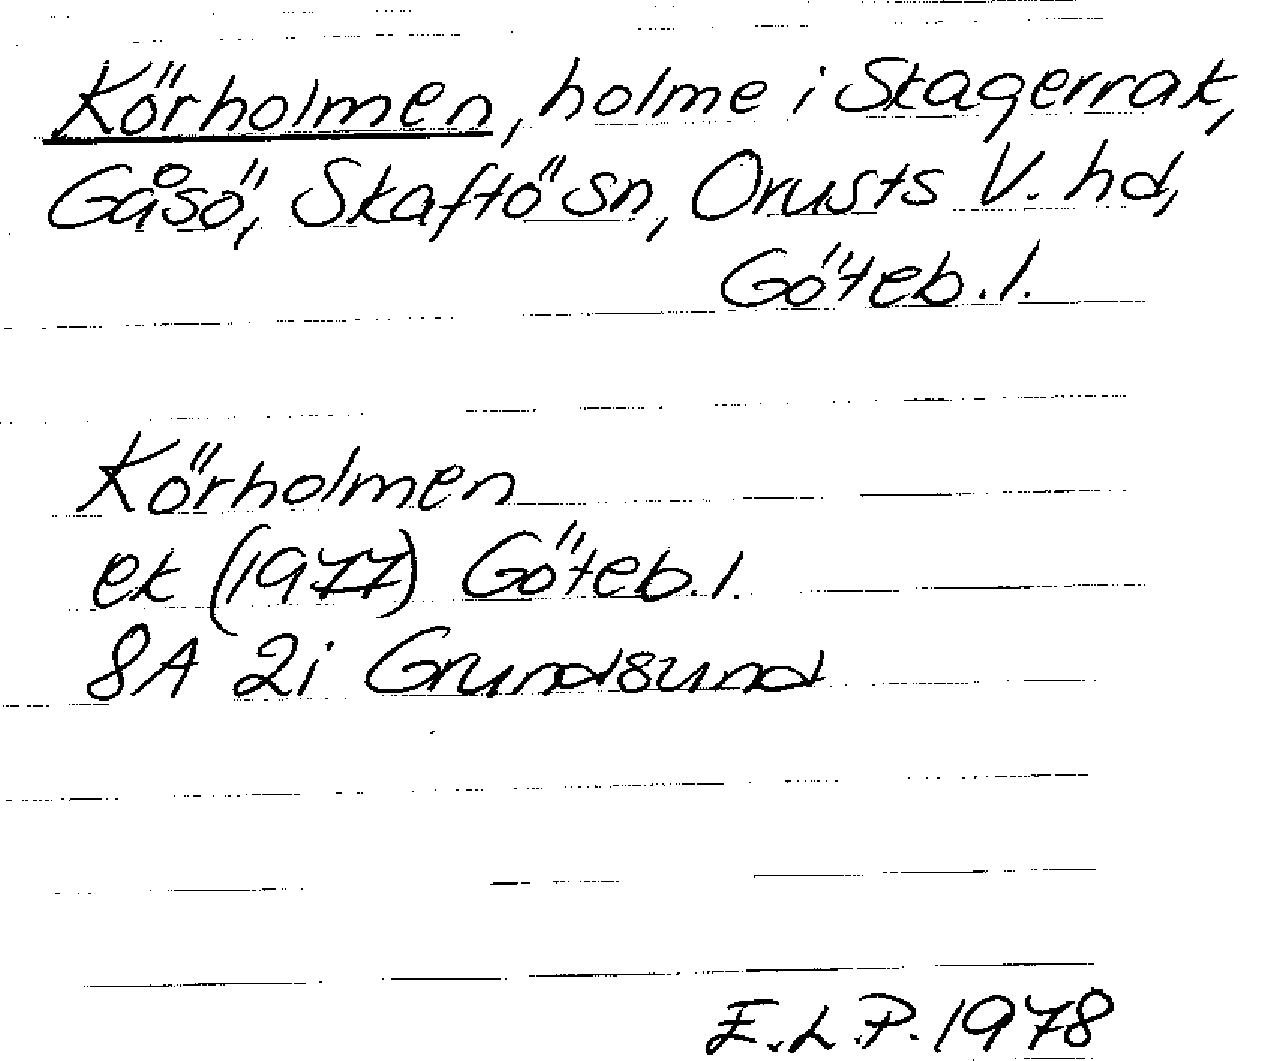 Körholmen, holme i Skagerrak,
Gåsö, Skaftö sn, Orusts V. hd,
Göteb. l.
Körholmen
ek (1977) Göteb. l.
8A 2i Grundsund
E.L.P. 1978